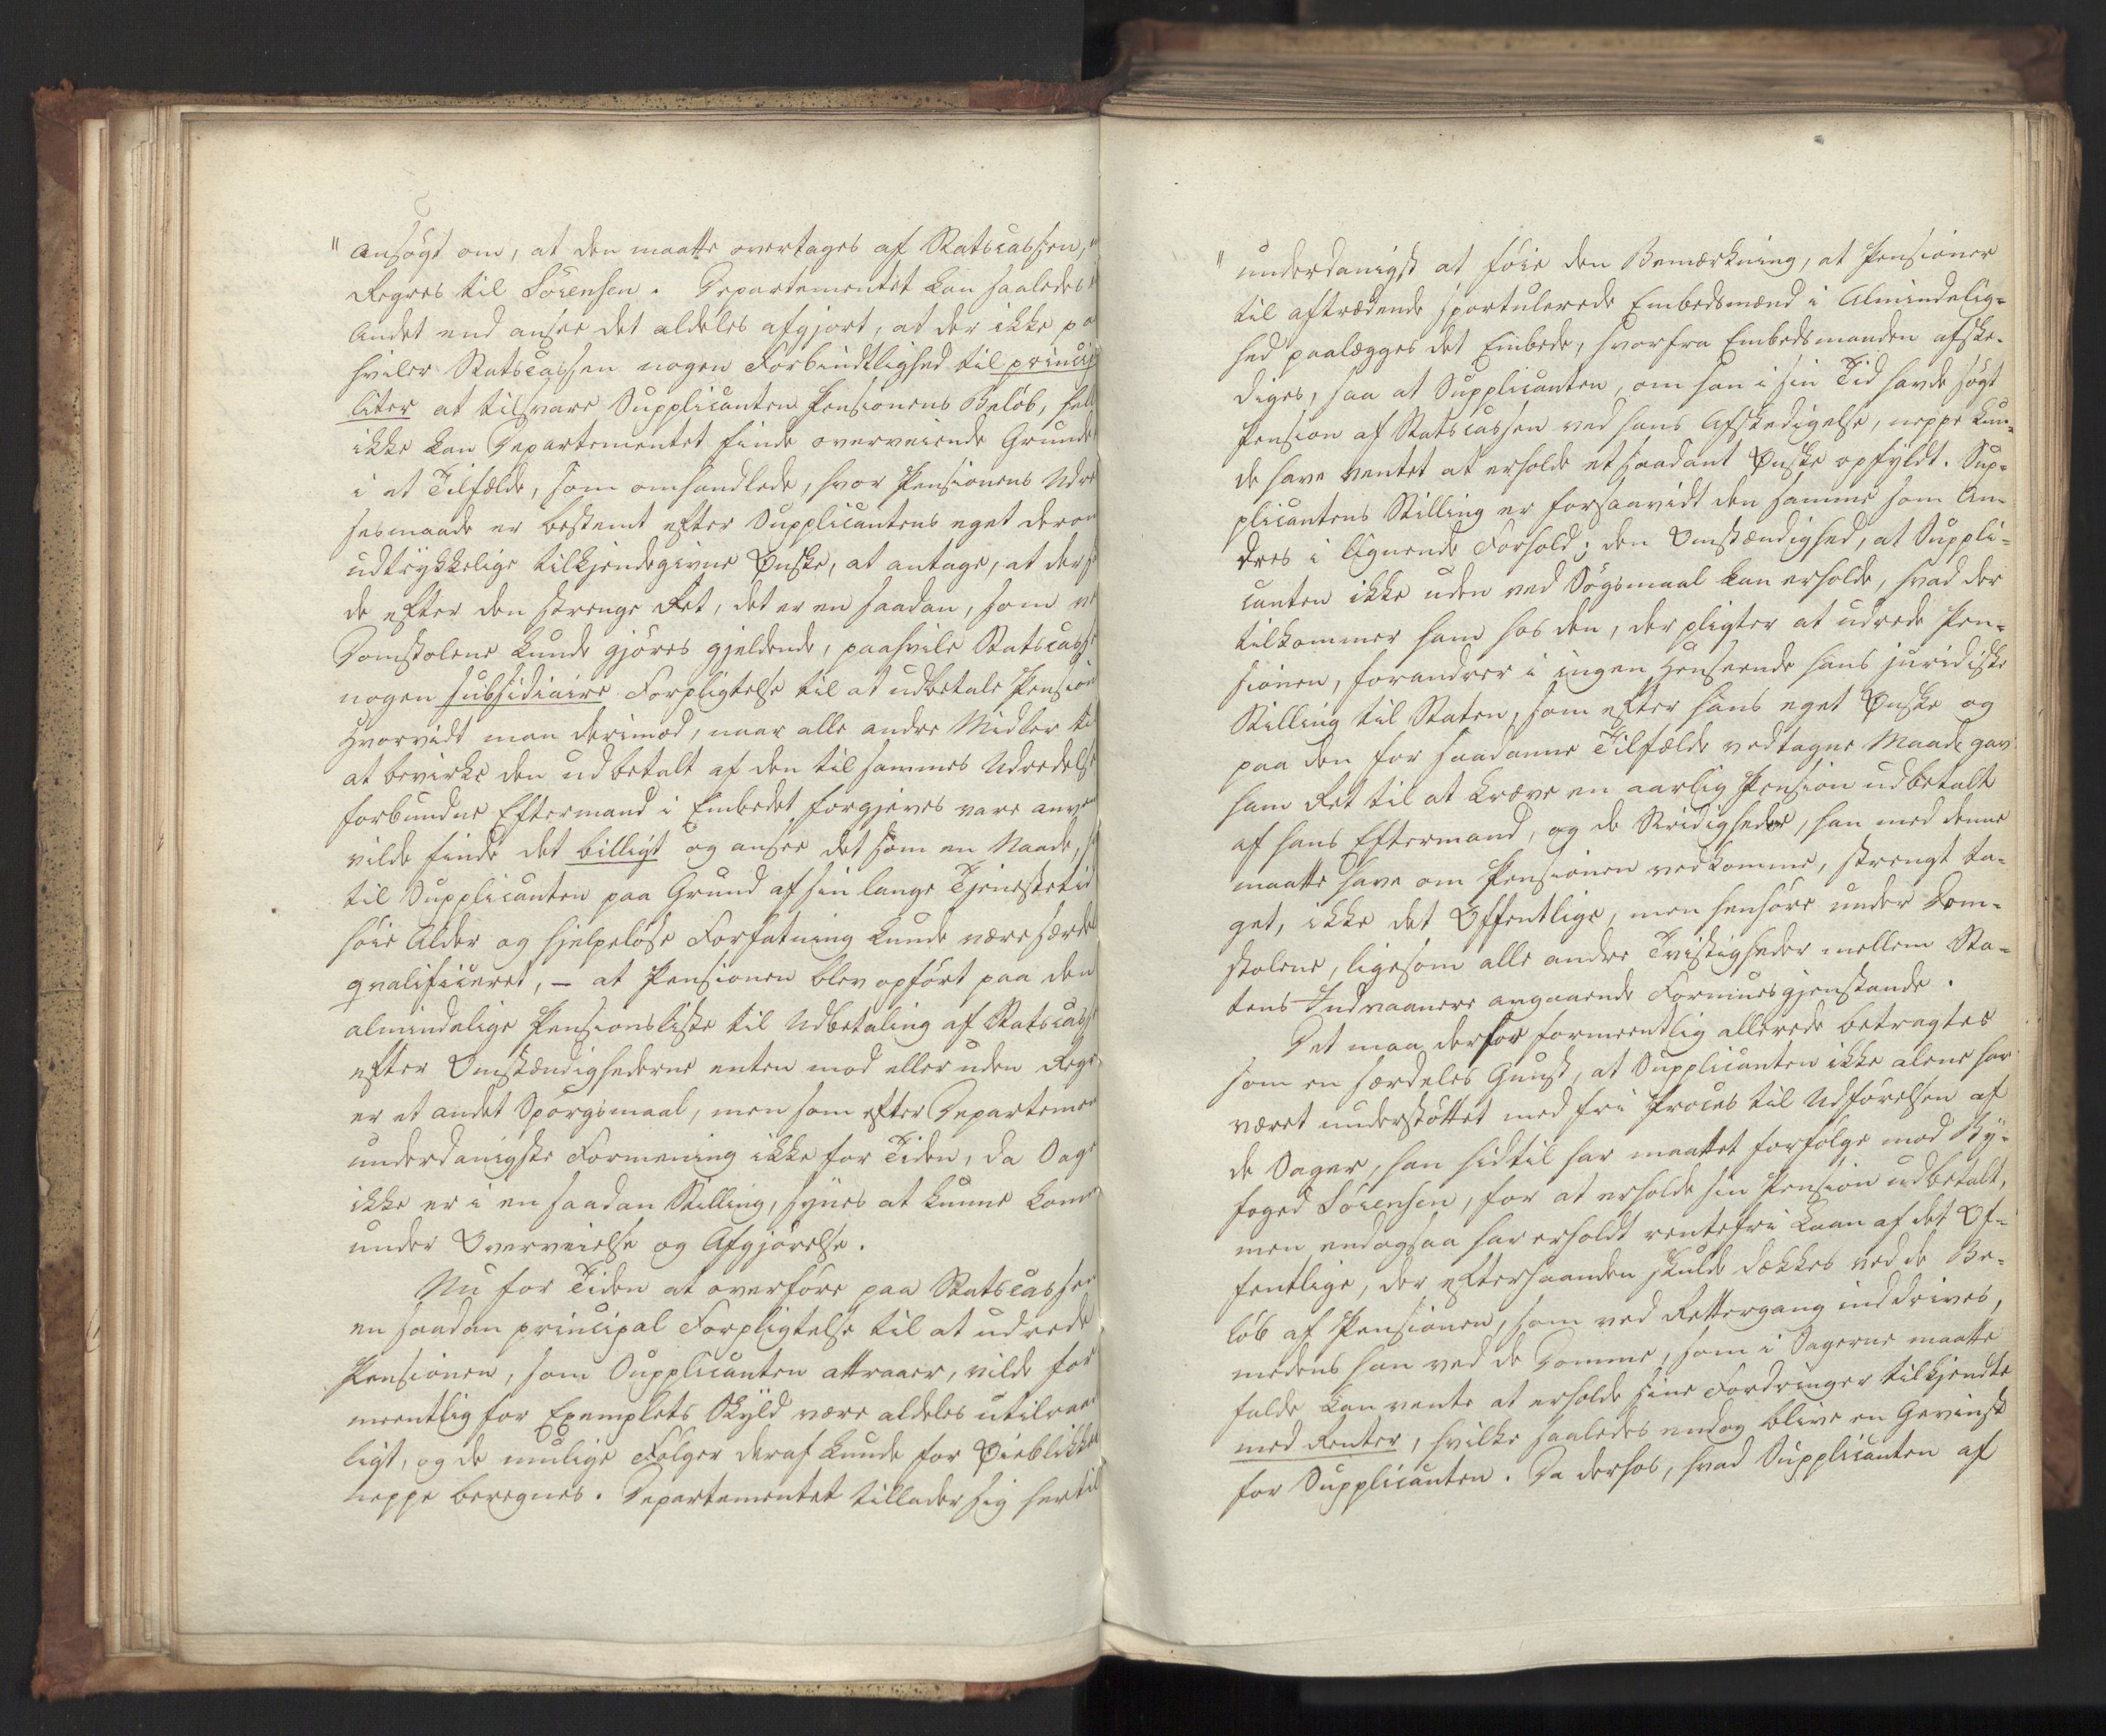 "ansøgt om, at den maatte overtages af Statscassen,
Regres til Sørensen. Departementet kan saaledes
Andet end ansee det aldeles afgjort, at der ikke pa
hviler Statscassen nogen Forbindtlighed til princip
liter at tilsvare Supplicanten Pensionens Beløb, hell
ikke kan Departementet finde overveiende Grunde
i et Tilfælde, som omhandlede, hvor Pensionens Udre
sesmaade er bestemt efter Supplicantens eget derom
udtrykkelige tilkjendegivne Ønske, at antage, at der
de efter den strenge Ret, det er en saadan, som ve
Domstolene kunde gjøres gjeldende, paahvile Statscasse
nogen subsidiaire Forpligtelse til at udbetale Pension
Hvorvidt man derimod, naar alle andre Midler til
at bevirke den udbetalt af den til sammes Udredelse
forbundne Eftermand i Embedet forgjeves vare anven
vilde finde det billigt og ansee det som en Naade,
til Supplicanten paa Grund af sin lange Tjenestetid
høie Alder og hjelpeløse Forfatning kunde være særdel
qvalificeret, – at Pensionen blev opført paa den
almindelige Pensionsliste til Udbetaling af Statscasse
efter Omstændighederne enten mod eller uden Regr
er et andet Spørgsmaal, men som efter Departemen
underdanigste Formening ikke for Tiden, da Sage
ikke er i en saadan Stilling, synes at kunne komme
under Overveielse og Afgjørelse.
Nu for Tiden at overføre paa Statscassen
en saadan principal Forpligtelse til at udrede
Pensionen, som Supplicanten attraaer, vilde for
meentlig for Exemplets Skyld være aldeles utilraade
ligt, og de mulige Følger deraf kunde for Øieblikket
neppe beregnes. Departementet tillader sig hertil
"underdanigst at føie den Bemærkning, at Pensioner
til aftrædende sportulerede Embedsmænd i Almindelig-
hed paalægges det Embede, hvorfra Embedsmanden afske-
diges, saa at Supplicanten, om han i sin Tid havde søgt
Pension af Statscassen ved hans Afskedigelse, neppe kun-
de have ventet at erholde et saadant Ønske opfyldt. Sup-
plicantens Stilling er forsaavidt den samme som An-
dres i lignende Forhold; den Omstændighed, at Suppli-
canten ikke uden ved Søgsmaal kan erholde, hvad der
tilkommer ham hos den, der pligter at udrede Pen-
sionen, forandrer i ingen Henseende hans juridiske
Stilling til Staten, som efter hans eget Ønske og
paa den for saadanne Tilfælde vedtagne Maade gav
ham Ret til at kræve en aarlig Pension udbetalt
af hans Eftermand, og de Stridigheder, han med denne
maatte have om Pensionen vedkomme, strengt ta-
get, ikke det Offentlige, men henhøre under Dom-
stolene, ligesom alle andre Tvistigheder mellem Sta-
tens Indvaanere angaaende Formuesgjenstande.
Det maa derfor formeentlig allerede betragtes
som en særdeles Gunst, at Supplicanten ikke alene har
været understøttet med fri Proces til Udførelsen af
de Sager, han hidtil har maattet forfølge mod By-
foged Sørensen, for at erholde sin Pension udbetalt,
men endogsaa har erholdt rentefri Laan af det Of-
fentlige, der efterhaanden skulde dækkes ved de Be-
løb af Pensionen, som ved Rettergang inddrives,
medens han ved de Domme, som i Sagerne maatte
falde kan vente at erholde sine Fordringer tilkjendte
med Renter, hvilke saaledes endog blive en Gevinst
for Supplicanten. Da derhos, hvad Supplicanten af